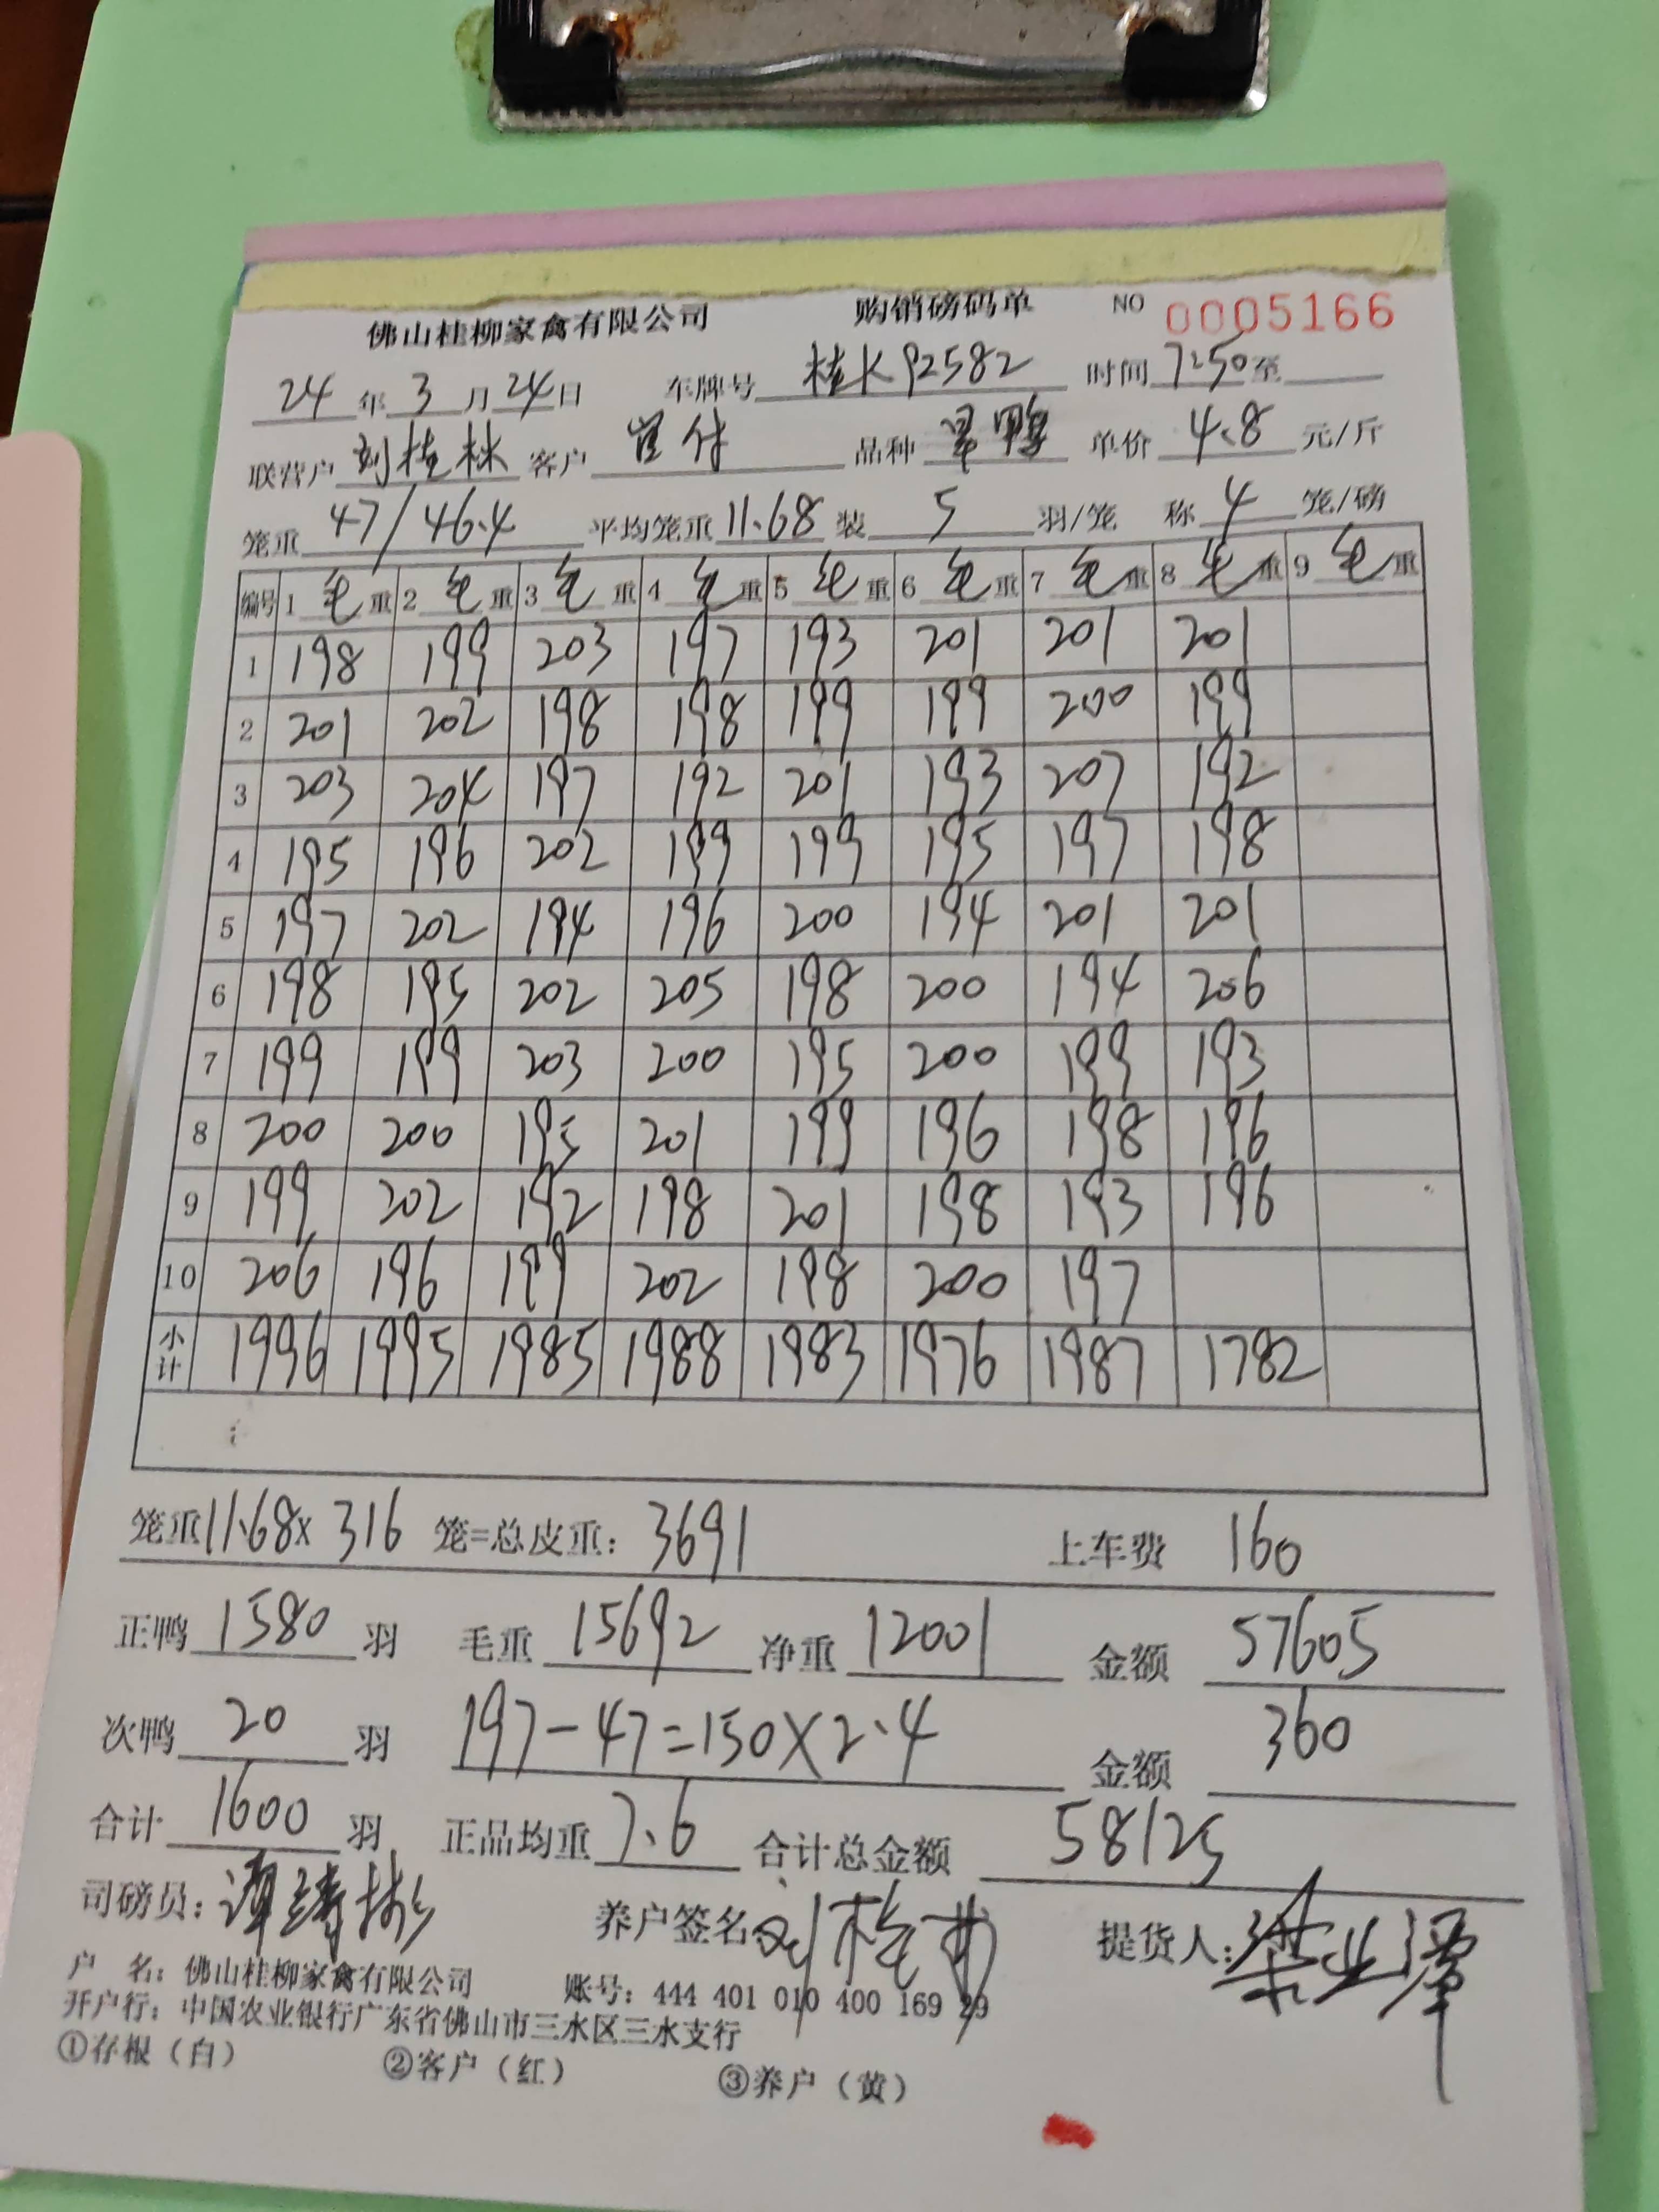 佛山桂柳家禽有限公司 购销磅码单 NO 0005166
24年3月24日 车牌号 桂K92582 时间7:50至
联营户 刘桂林 客户 品种 鸭 单价 4.8 元/斤
笼重 47/46.4 平均笼重 11.68 装 5 羽/笼 称 4 笼/磅
编号 1 毛重 2 毛重 3 毛重 4 毛重 5 毛重 6 毛重 7 毛重 8 毛重 9 毛重
1 198 199 203 197 193 201 201 201
2 201 202 198 198 199 199 200 199
3 203 204 197 192 201 193 207 192
4 195 196 202 199 199 195 197 198
5 197 202 194 196 200 194 201 201
6 198 195 202 205 198 200 194 206
7 199 199 203 200 195 200 199 193
8 200 200 195 201 199 196 198 196
9 199 202 192 198 201 198 193 196
10 206 196 199 202 198 200 197
小计 1996 1995 1985 1988 1983 1976 1987 1782
笼重11.68x 316 笼=总皮重: 3691 上车费 160
正鸭 1580 羽 毛重 15692 净重 12001 金额 57605
次鸭 20 羽 197-47=150X2.4 金额 360
合计 1600 羽 正品均重 7.6 合计总金额 58125
司磅员: 养户签名 刘桂林 提货人:
户 名: 佛山桂柳家禽有限公司 账号: 444 401 010 400 169 29
开户行: 中国农业银行广东省佛山市三水区三水支行
①存根(白) ②客户(红) ③养户(黄)